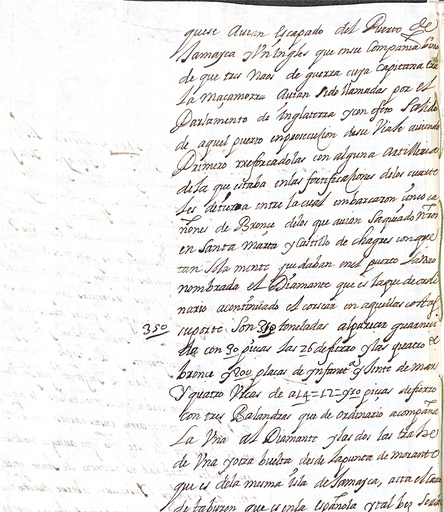 quese Avian Escapado del Puerto de
Jamayca y Un Ingles que en su Compañia
de que tres Naos de guerra cuya Capitana
La Maçamorra Avian sido llamadas por el
Parlamento de Inglaterra y con efeto Salido
de aquel puerto en prosecucion de su Viaje aviendo
Primero rreforcadolas con alguna Artilleria
de la que estaba en las fortificaciones de los cuarte
les de tierra entre la cual embarcaron cinco ca
ñones de Bronce delos que avian Saqueado
en Santa Marta y Castillo de chagre con que
tan Sola mente quedaban en el puerto la Nao
nombrada el Diamante que es la que de ordi
nario a continuado el corsear en aquellas costas
350 su porte Son toneladas al parecer guarneci
da con 30 piesas las 26 de fierro y las quatro de
bronce y 200 plaças de ynfant.a y Siento de mar
Y quatro Urcas de a 14=12=y 10 piesas de fierro
con tres Balandras que de ordinario acompaña
La Una al Diamante y las dos
de Una y otra buelta desde la punta de morante
que es dela mesma isla de Jamayca, asta el Cavo
de tiburon que es en la española y tal bez